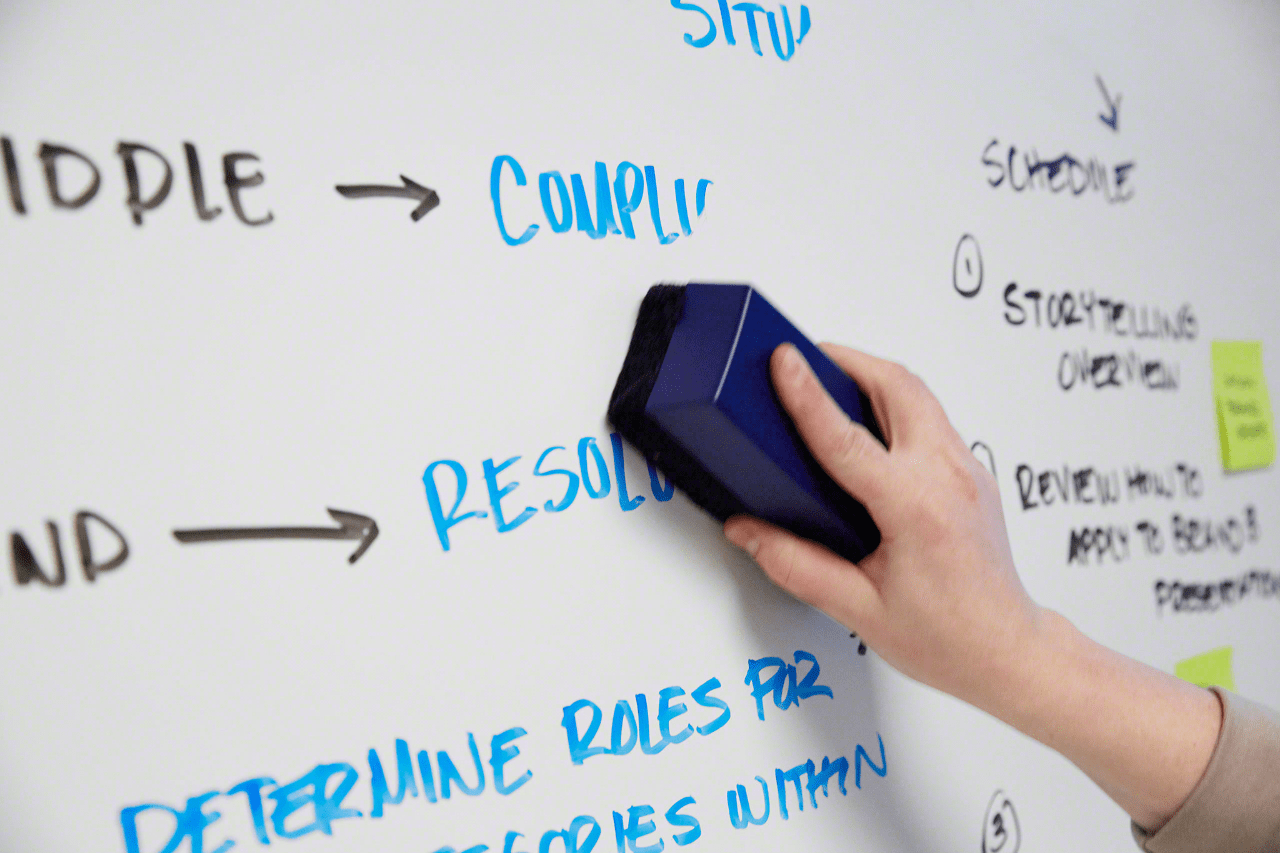 SITU
IDDLE → COMPLI
ND → RESOLU
DETERMINE ROLES FOR
EGORIES WITHIN
↓
SCHEDULE
①
STORYTELLING
OVERVIEW
REVIEW HOW TO
APPLY TO BRAND &
PRESENTATION
③